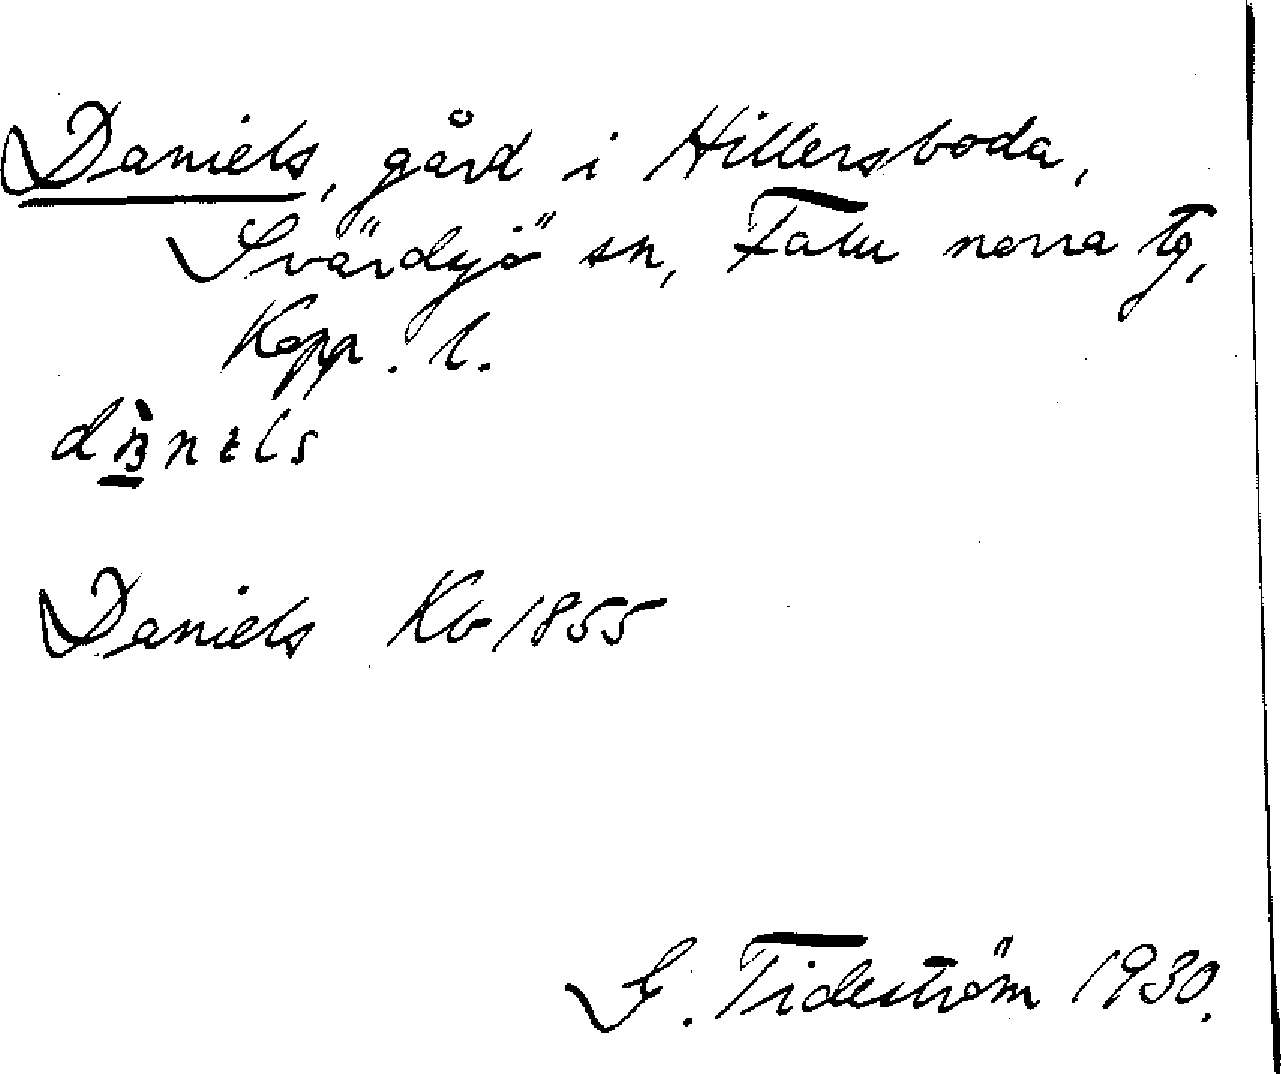 Daniels, gård i Hillersboda,
Svärdsjö sn, Falu norra tg,
Kopp. l.
Daniels Kb 1855
G. Tideström 1930.